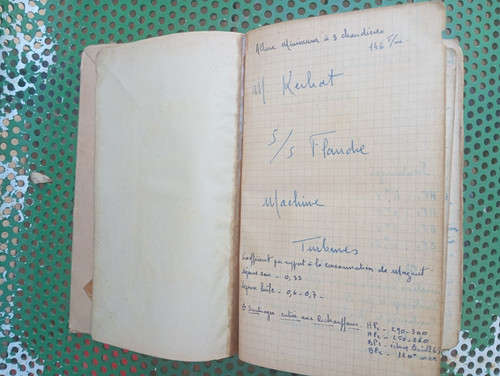 Allure minimum à 3 chaudières
146 T/m
M. Kerhat
S/S Flandre
Machine
Turbines
Coefficient par rapport à la consommation de Mazout
eau - 0,33
- 0,6-0,7 -
Soutirages entrée aux Rechauffeurs HP1 - 290-300
HP2 - 250-260
BP1 -
BP2 - 120°